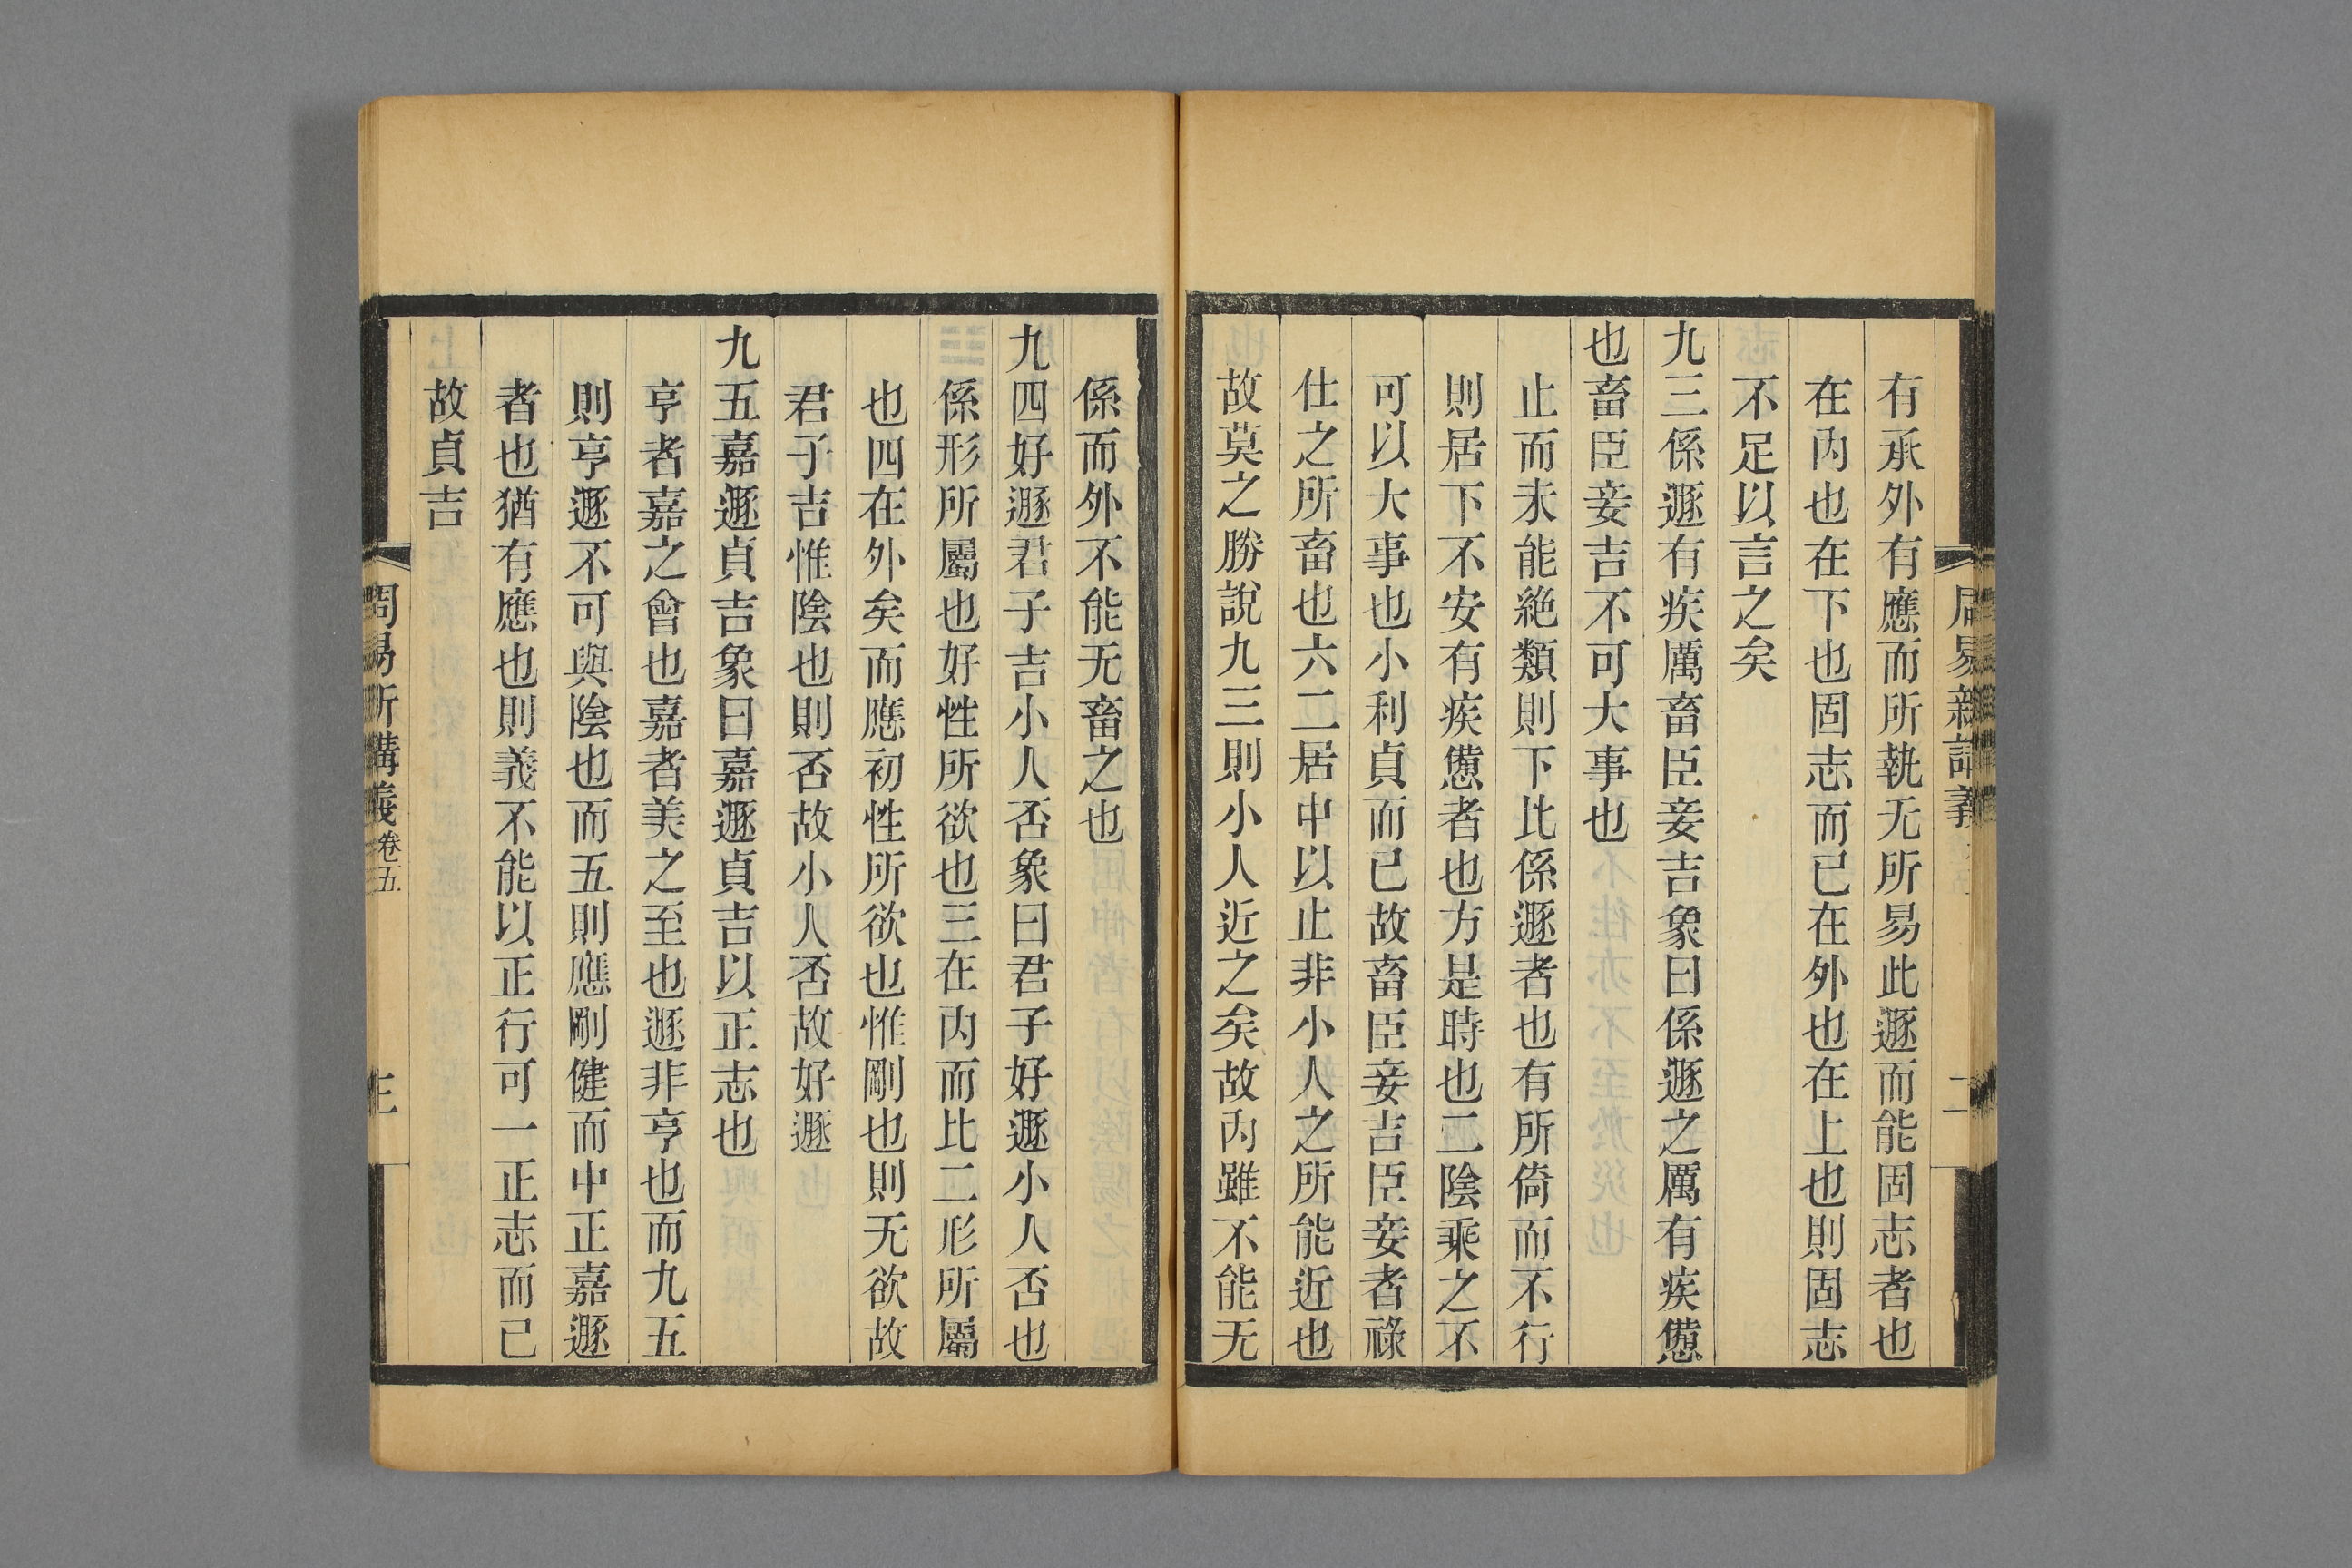 周易新講義 二
有承外有應而所執无所易此遯而能固志者也
在內也在下也固志而已在外也在上也則固志
不足以言之矣
九三係遯有疾厲畜臣妾吉象曰係遯之厲有疾憊
也畜臣妾吉不可大事也
止而未能絕類則下比係遯者也有所倚而不行
則居下不安有疾憊者也方是時也二陰乘之不
可以大事也小利貞而已故畜臣妾吉臣妾者祿
仕之所畜也六二居中以止非小人之所能近也
故莫之勝說九三則小人近之矣故內雖不能无
係而外不能无畜之也
九四好遯君子吉小人否象曰君子好遯小人否也
係形所屬也好性所欲也三在內而比二形所屬
也四在外矣而應初性所欲也惟剛也則无欲故
君子吉惟陰也則否故小人否故好遯
九五嘉遯貞吉象曰嘉遯貞吉以正志也
亨者嘉之會也嘉者美之至也遯非亨也而九五
則亨遯不可與陰也而五則應剛健而中正嘉遯
者也猶有應也則義不能以正行可一正志而已
故貞吉
周易新講義 卷五 三